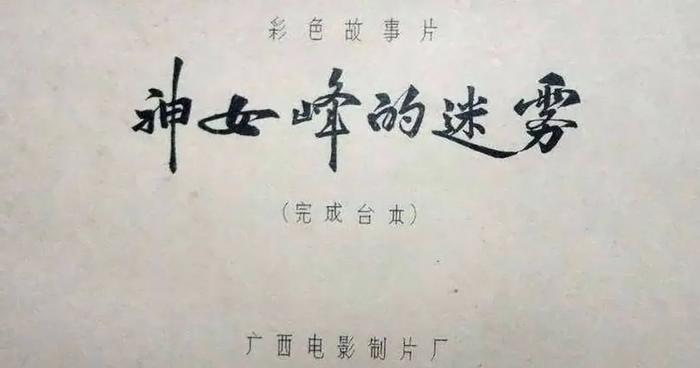 彩色故事片
神女峰的迷雾
(完成台本)
广西电影制片厂